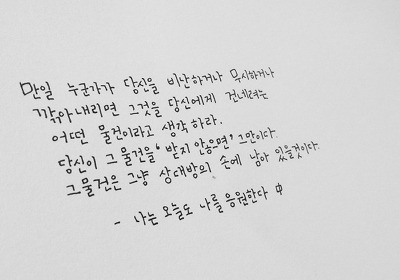 만일 누군가가 당신을 비난하거나 무시하거나
깎아내리면 그것을 당신에게 건네려는
어떤 물건이라고 생각하라.
당신이 그 물건을 '받지 않으면' 그만이다.
그 물건은 그냥 상대방의 손에 남아 있을것이다.
- 나는 오늘도 나를 응원한다